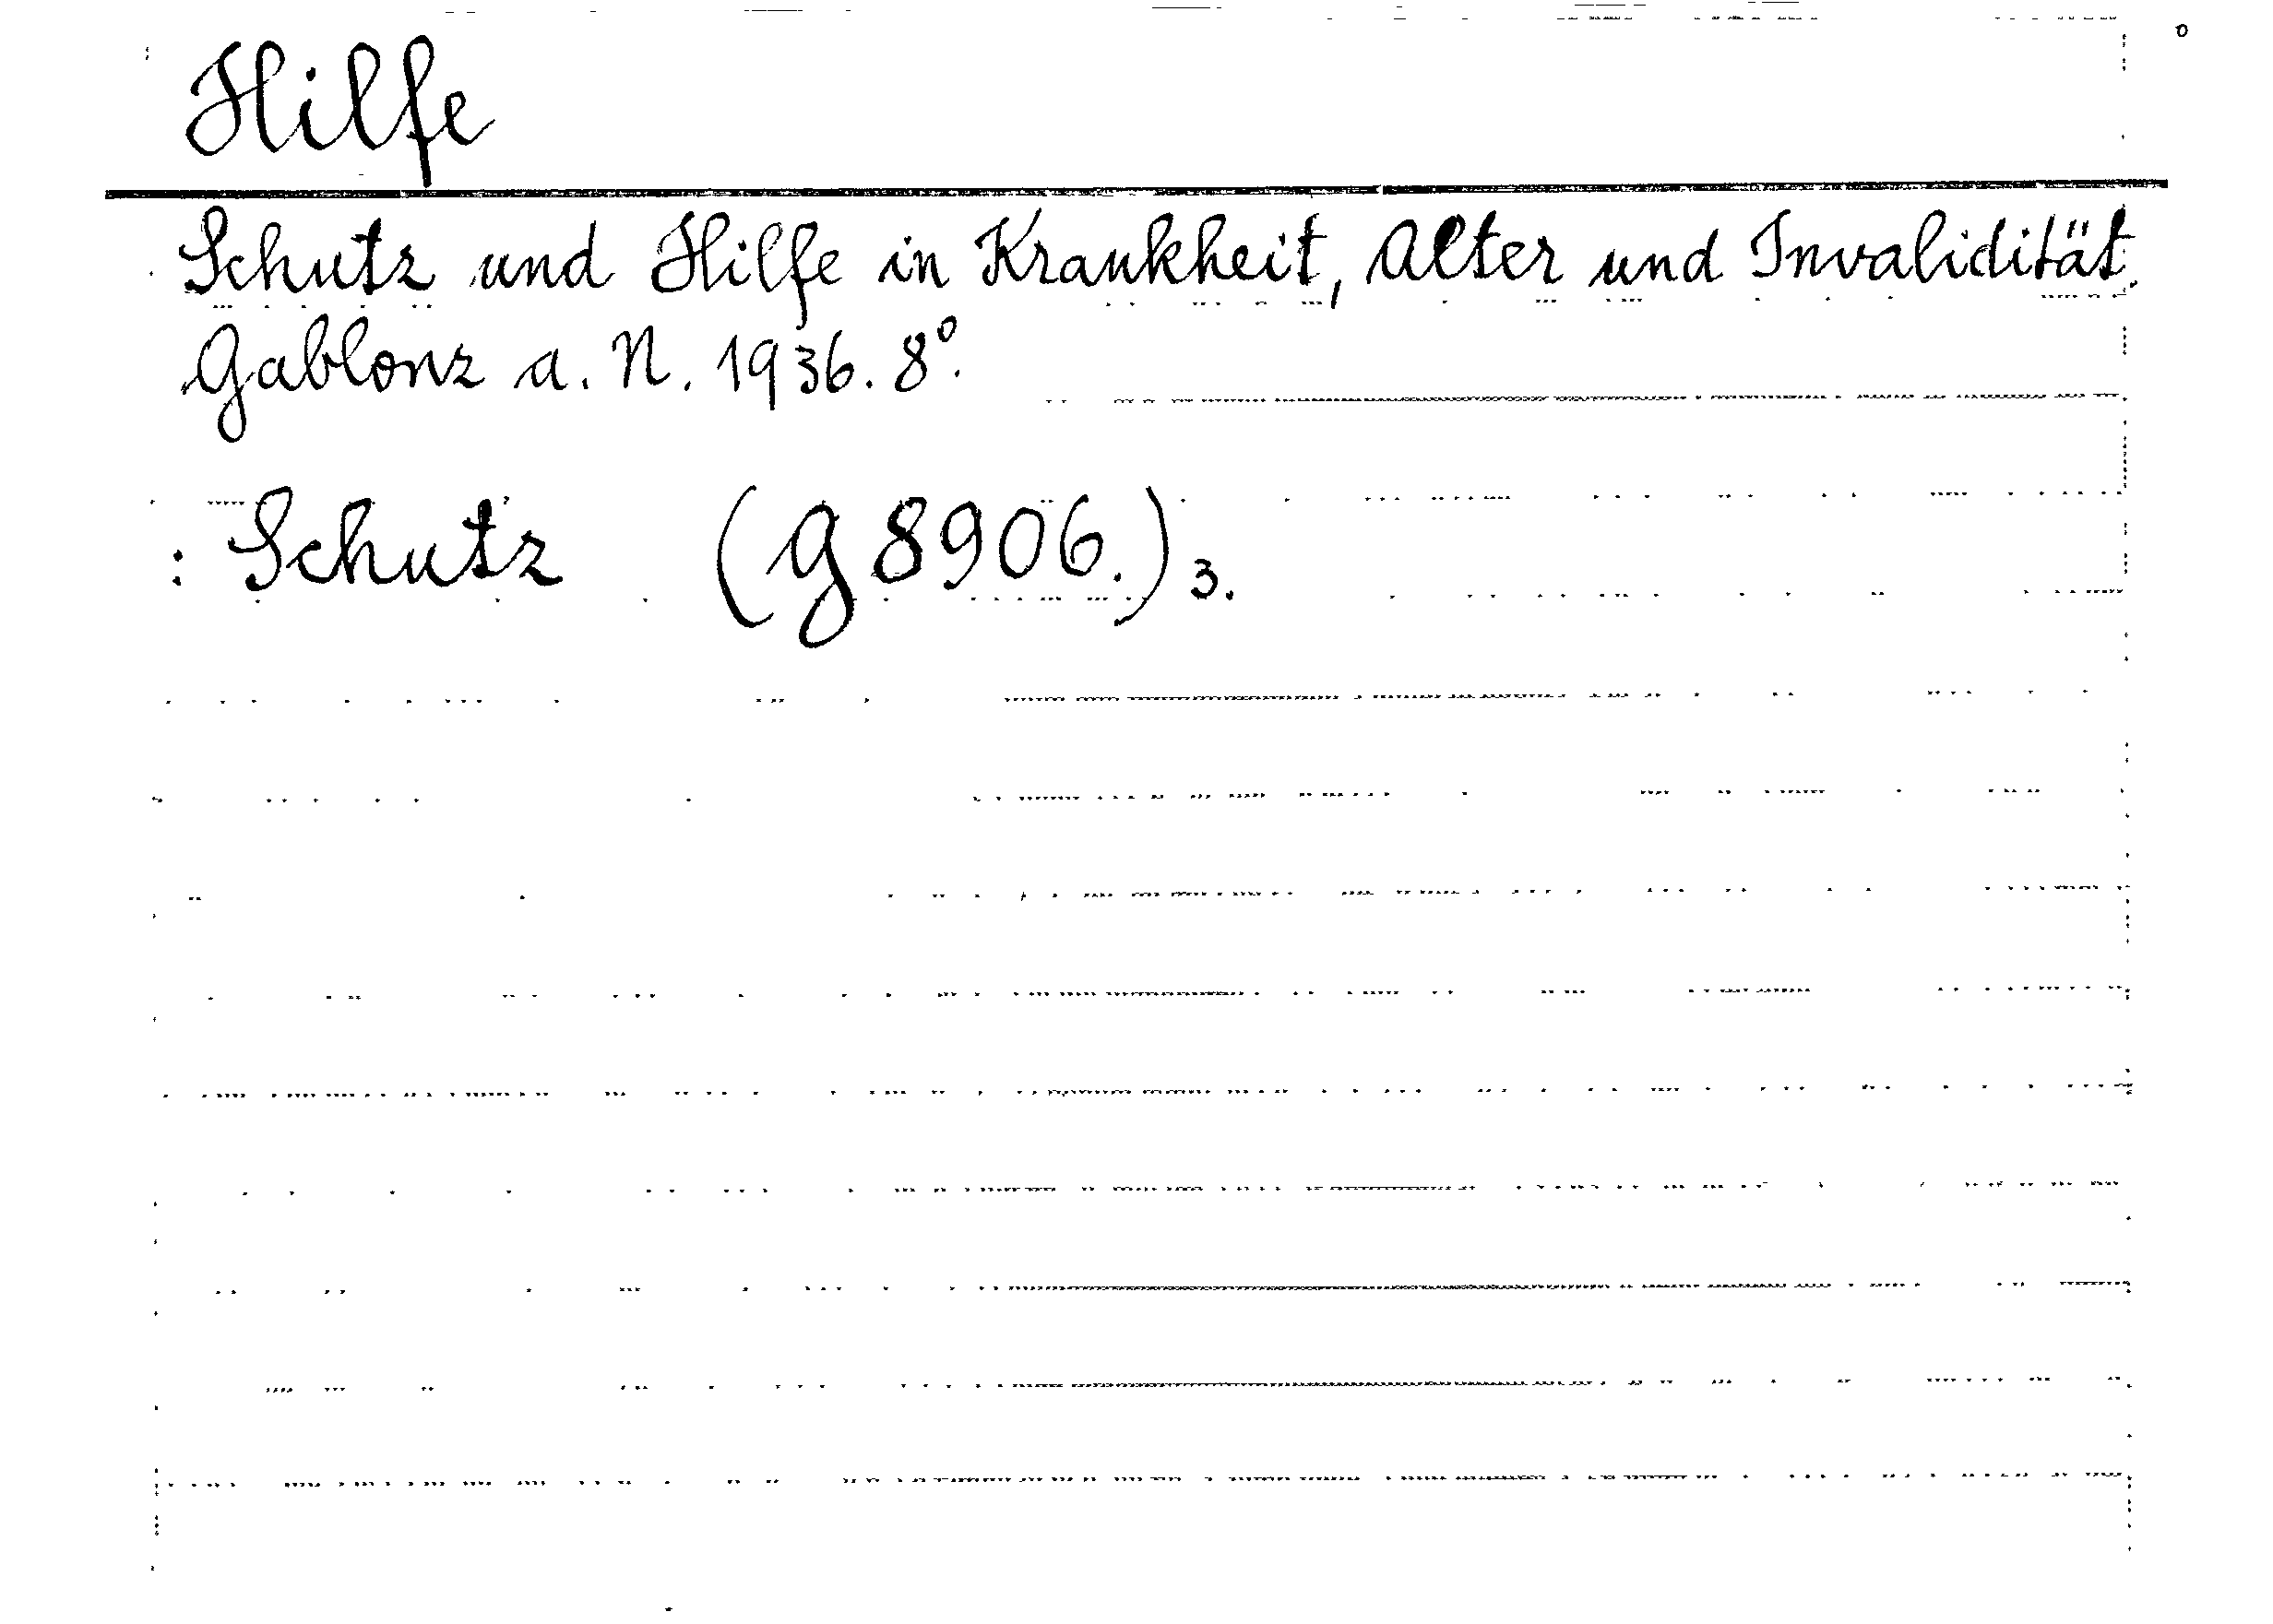 Hilfe
Schutz und Hilfe in Krankheit, Alter und Invalidität.
Gablonz a. N. 1936. 8°.
: Schutz (g 8906.) 3.